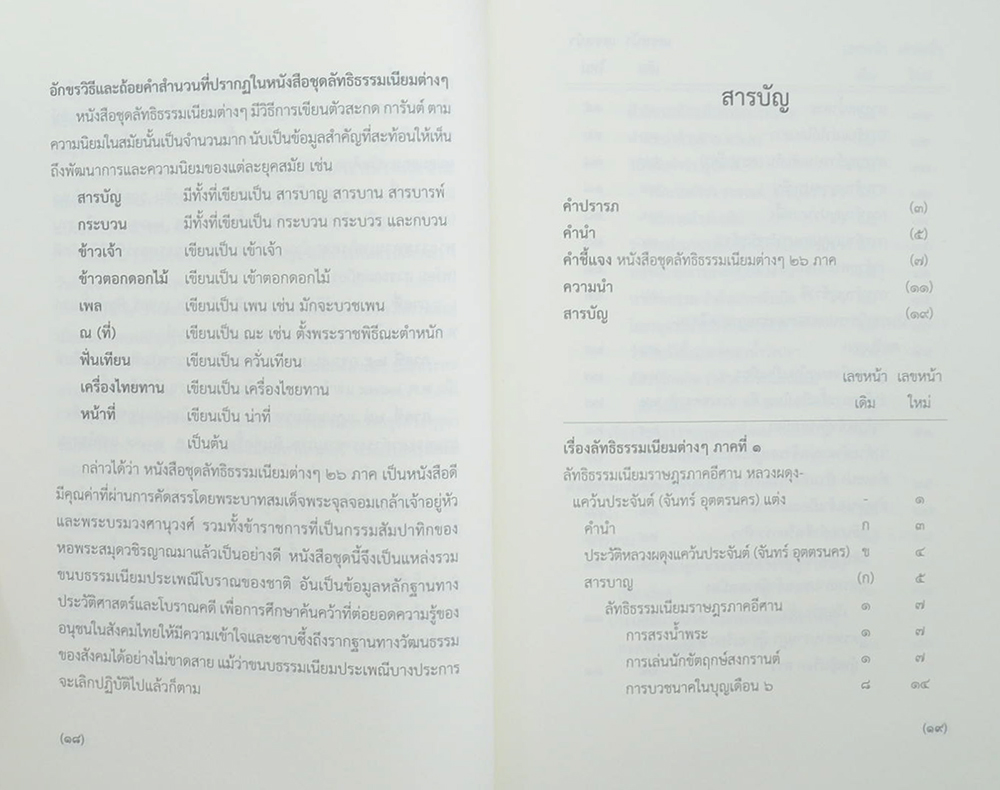 อักขรวิธีและถ้อยคำสำนวนที่ปรากฏในหนังสือชุดลัทธิธรรมเนียมต่างๆ
หนังสือชุดลัทธิธรรมเนียมต่างๆ มีวิธีการเขียนตัวสะกด การันต์ ตาม
ความนิยมในสมัยนั้นเป็นจำนวนมาก นับเป็นข้อมูลสำคัญที่สะท้อนให้เห็น
ถึงพัฒนาการและความนิยมของแต่ละยุคสมัย เช่น
สารบัญ มีทั้งที่เขียนเป็น สารบาญ สารบาน สารบารพ์
กระบวน มีทั้งที่เขียนเป็น กระบวน กระบวร และกบวน
ข้าวเจ้า เขียนเป็น เข้าเจ้า
ข้าวตอกดอกไม้ เขียนเป็น เข้าตอกดอกไม้
เพล เขียนเป็น เพน เช่น มักจะบวชเพน
ณ (ที่) เขียนเป็น ณะ เช่น ตั้งพระราชพิธีณะตำหนัก
ฟั่นเทียน เขียนเป็น ควั่นเทียน
เครื่องไทยทาน เขียนเป็น เครื่องไชยทาน
หน้าที่ เขียนเป็น น่าที่
เป็นต้น
กล่าวได้ว่า หนังสือชุดลัทธิธรรมเนียมต่างๆ ๒๖ ภาค เป็นหนังสือดี
มีคุณค่าที่ผ่านการคัดสรรโดยพระบาทสมเด็จพระจุลจอมเกล้าเจ้าอยู่หัว
และพระบรมวงศานุวงศ์ รวมทั้งข้าราชการที่เป็นกรรมสัมปาทิกของ
หอพระสมุดวชิรญาณมาแล้วเป็นอย่างดี หนังสือชุดนี้จึงเป็นแหล่งรวม
ขนบธรรมเนียมประเพณีโบราณของชาติ อันเป็นข้อมูลหลักฐานทาง
ประวัติศาสตร์และโบราณคดี เพื่อการศึกษาค้นคว้าที่ต่อยอดความรู้ของ
อนุชนในสังคมไทยให้มีความเข้าใจและซาบซึ้งถึงรากฐานทางวัฒนธรรม
ของสังคมได้อย่างไม่ขาดสาย แม้ว่าขนบธรรมเนียมประเพณีบางประการ
จะเลิกปฏิบัติไปแล้วก็ตาม
(๑๘)
สารบัญ
คำปรารภ (๓)
คำนำ (๕)
คำชี้แจง หนังสือชุดลัทธิธรรมเนียมต่างๆ ๒๖ ภาค (๗)
ความนำ (๑๑)
สารบัญ (๑๙)
เลขหน้า เลขหน้า
เดิม ใหม่
เรื่องลัทธิธรรมเนียมต่างๆ ภาคที่ ๑
ลัทธิธรรมเนียมราษฎรภาคอีศาน หลวงผดุง-
แคว้นประจันต์ (จันทร์ อุตตรนคร) แต่ง - ๑
คำนำ ก ๓
ประวัติหลวงผดุงแคว้นประจันต์ (จันทร์ อุตตรนคร) ข ๔
สารบาญ (ก) ๕
ลัทธิธรรมเนียมราษฎรภาคอีศาน ๑ ๗
การสรงน้ำพระ ๑ ๗
การเล่นนักขัตฤกษ์สงกรานต์ ๑ ๗
การบวชนาคในบุญเดือน ๖ ๘ ๑๔
(๑๙)